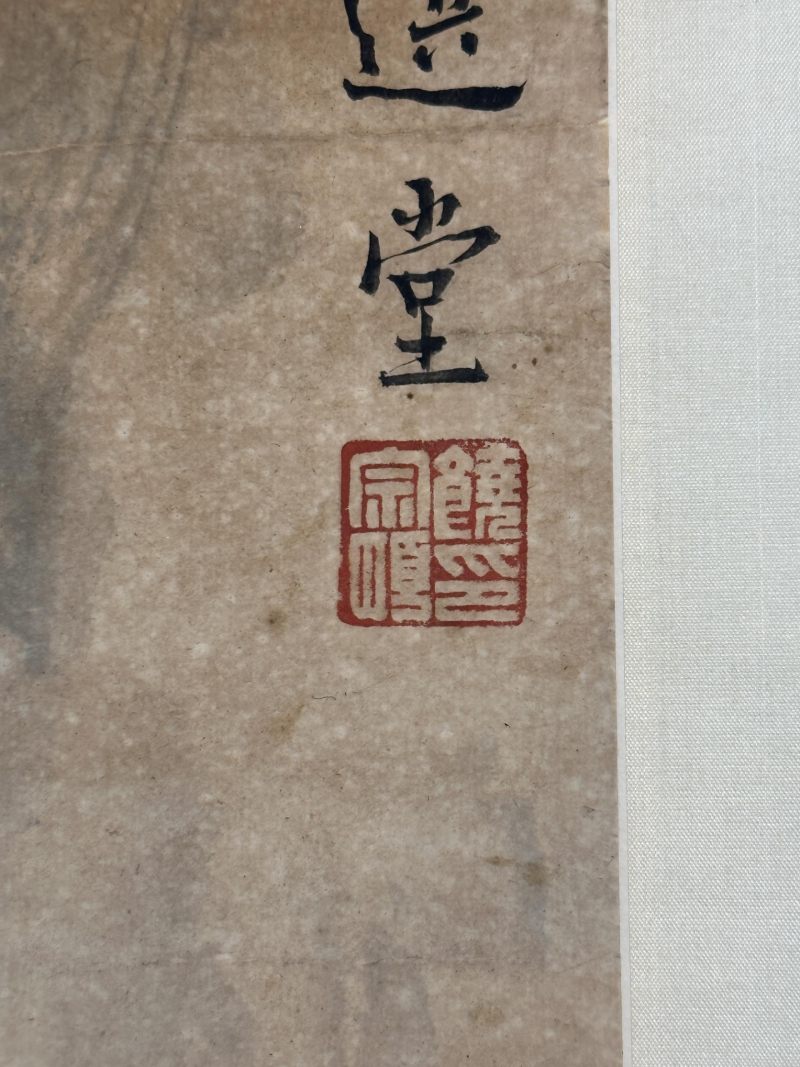 選堂
饒印
宗頤